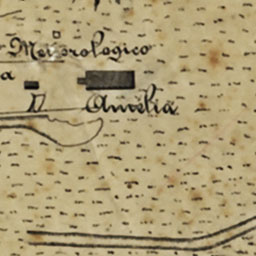 Meteorologico
a
D. Amelia